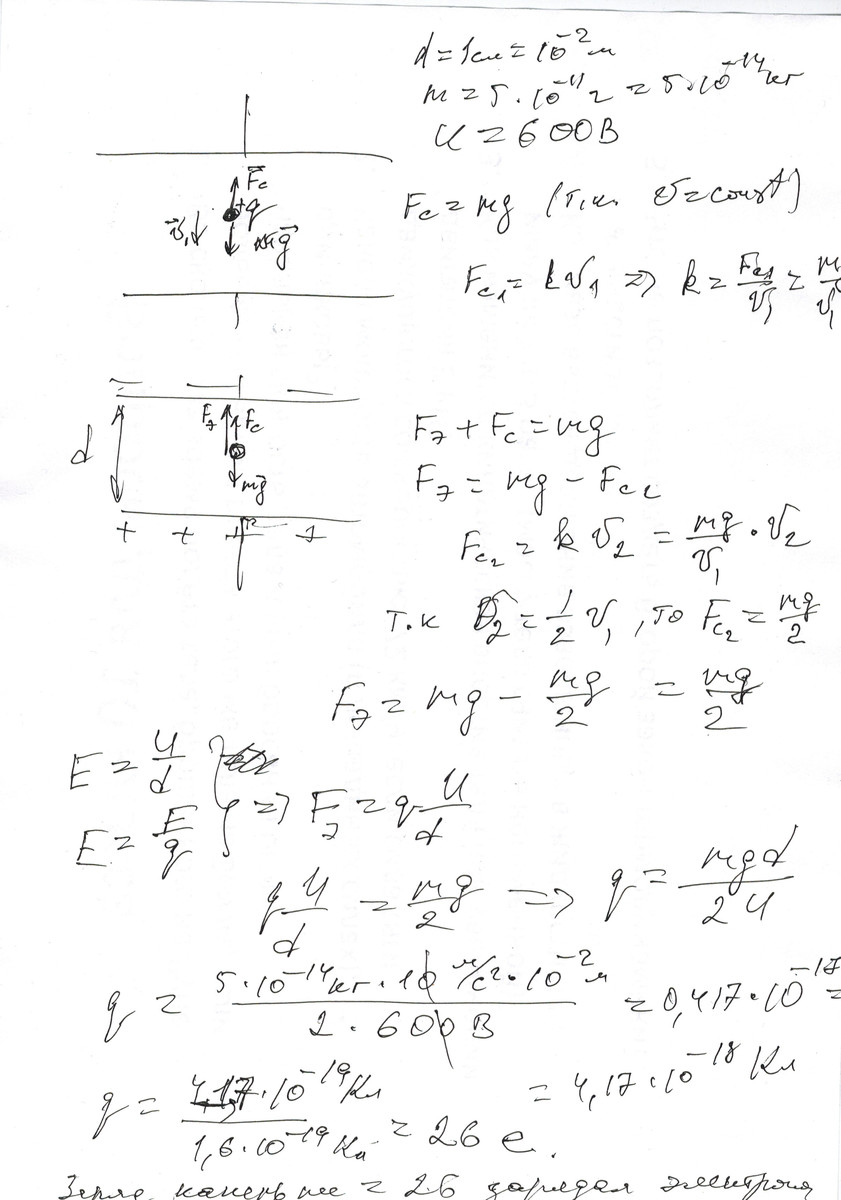 d = 1см = 10⁻² м
m = 5·10⁻¹¹ г = 5·10⁻¹⁴ кг
U = 600 В
F⃗c
+q
v⃗₁↓
mg⃗
Fc = mg (т.к. v = const)
Fc₁ = kv₁ => k = Fc₁/v₁ = m
v₁
d
Fэ Fc
mg⃗
+ + + +
Fэ + Fc = mg
Fэ = mg − Fc₂
Fc₂ = k v₂ = mg/v₁ · v₂
т.к v₂ = 1/2 v₁, то Fc₂ = mg/2
Fэ = mg − mg/2 = mg/2
E = U/d
E = F/q } => Fэ = q U/d
q U/d = mg/2 => q = mgd/2U
q = 5·10⁻¹⁴кг · 10 м/с² · 10⁻² м / 2·600 В = 0,417·10⁻¹⁷ =
= 4,17·10⁻¹⁸ Кл
q = 4,17·10⁻¹⁹Кл / 1,6·10⁻¹⁹Кл = 26 e.
= 26 зарядам электрона